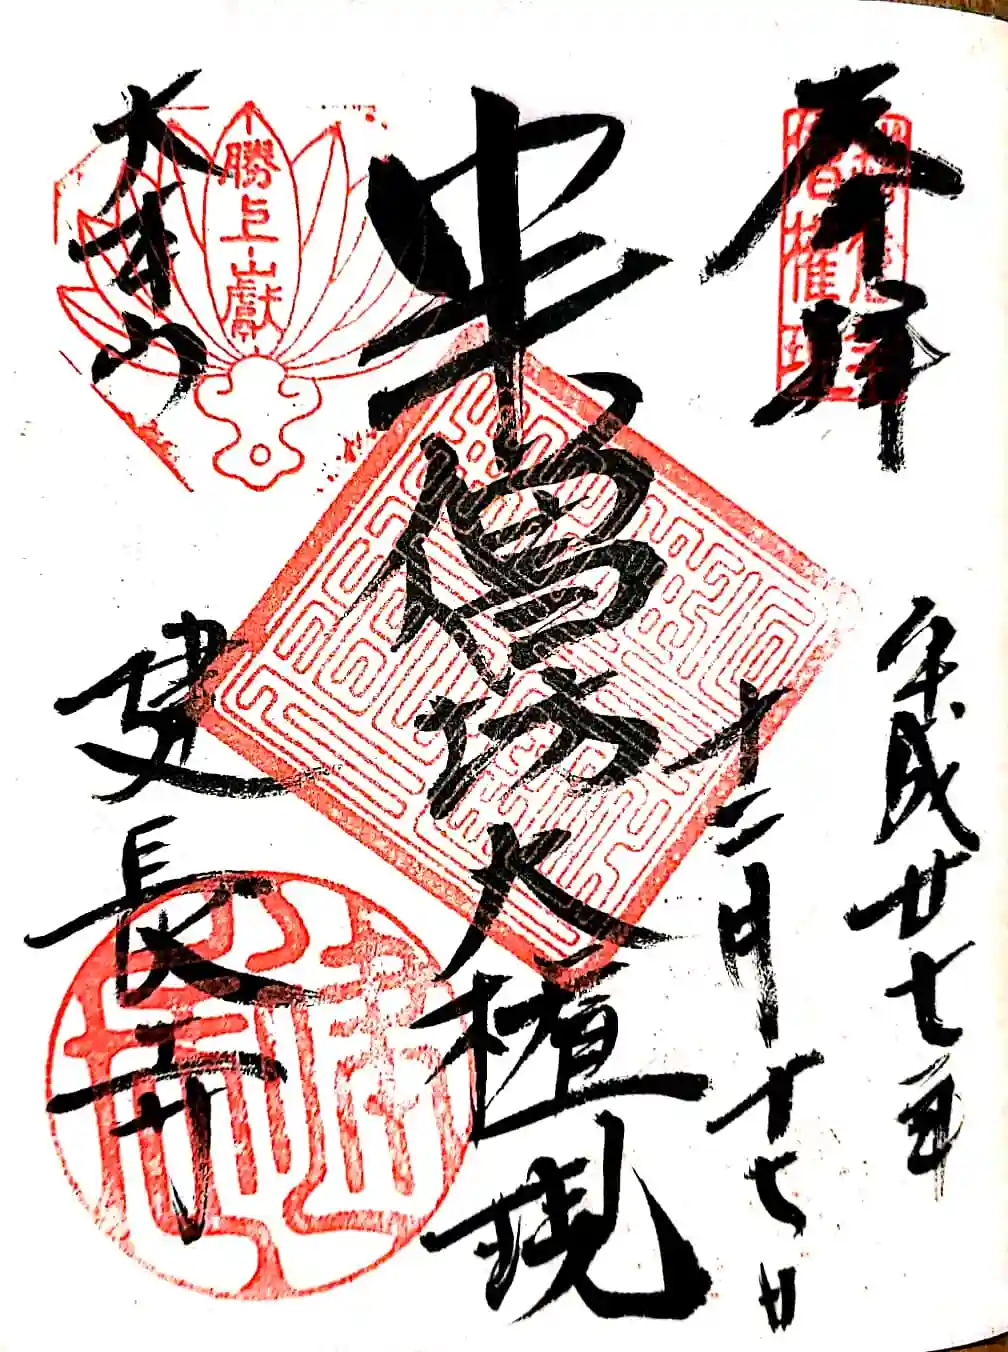 奉拝
平成廿七年
十二月十七日
半僧坊大権現
勝上嶽
大本山
建長寺